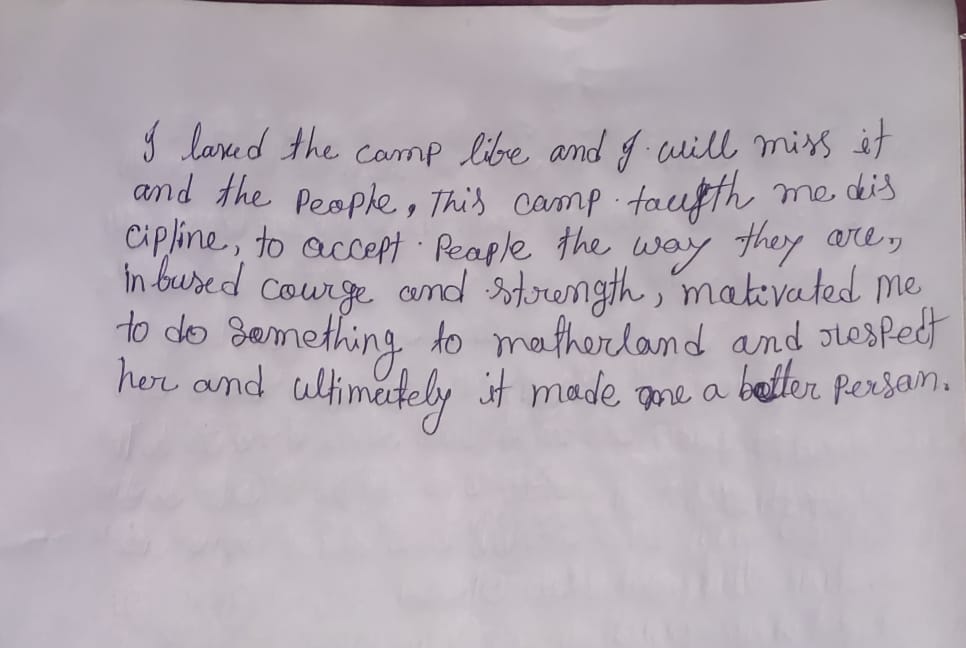 I loved the camp life and I will miss it
and the People, This camp taugth me dis
cipline, to accept People the way they are,
inbused courge and strength, motivated me
to do something to motherland and respect
her and ultimately it made me a better Person.